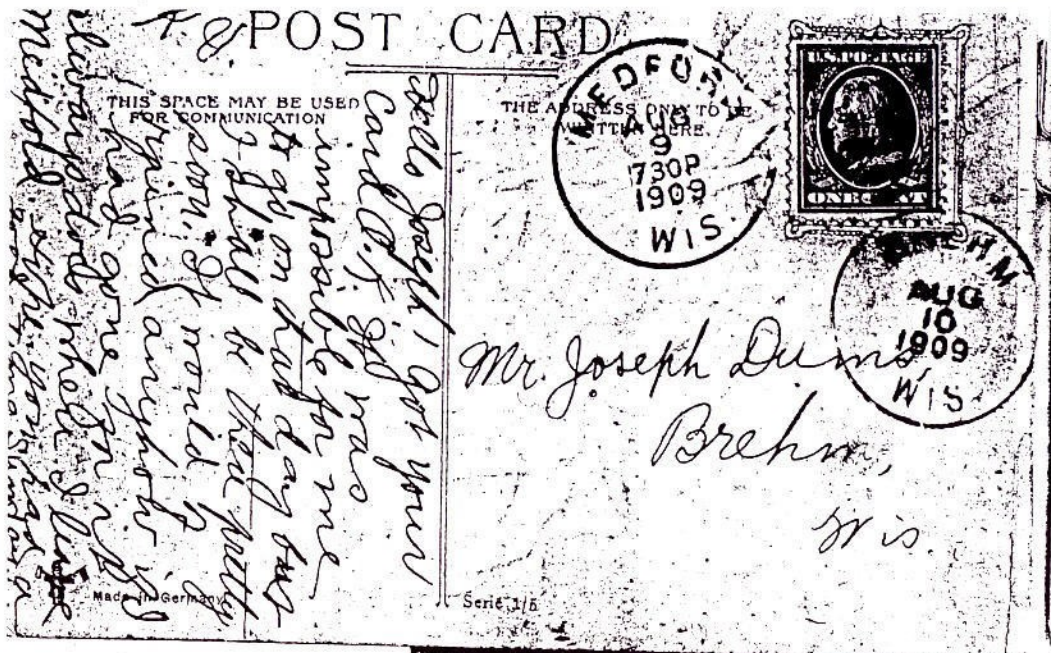 POST CARD
THIS SPACE MAY BE USED
FOR COMMUNICATION
THE ADDRESS ONLY TO BE
WRITTEN HERE.
MEDFORD
AUG
9
730P
1909
WIS
U.S. POSTAGE
ONE CENT
BREHM
AUG
10
1909
WIS
Hello Joseph I got your
card O.K. it was
impossible for me
to go on that day but
I shall be there pretty
soon. I would
anyhow if
I had gone for
where I
Medford
Mr. Joseph Dums
Brehm,
Wis.
Made in Germany
Serie 1/5